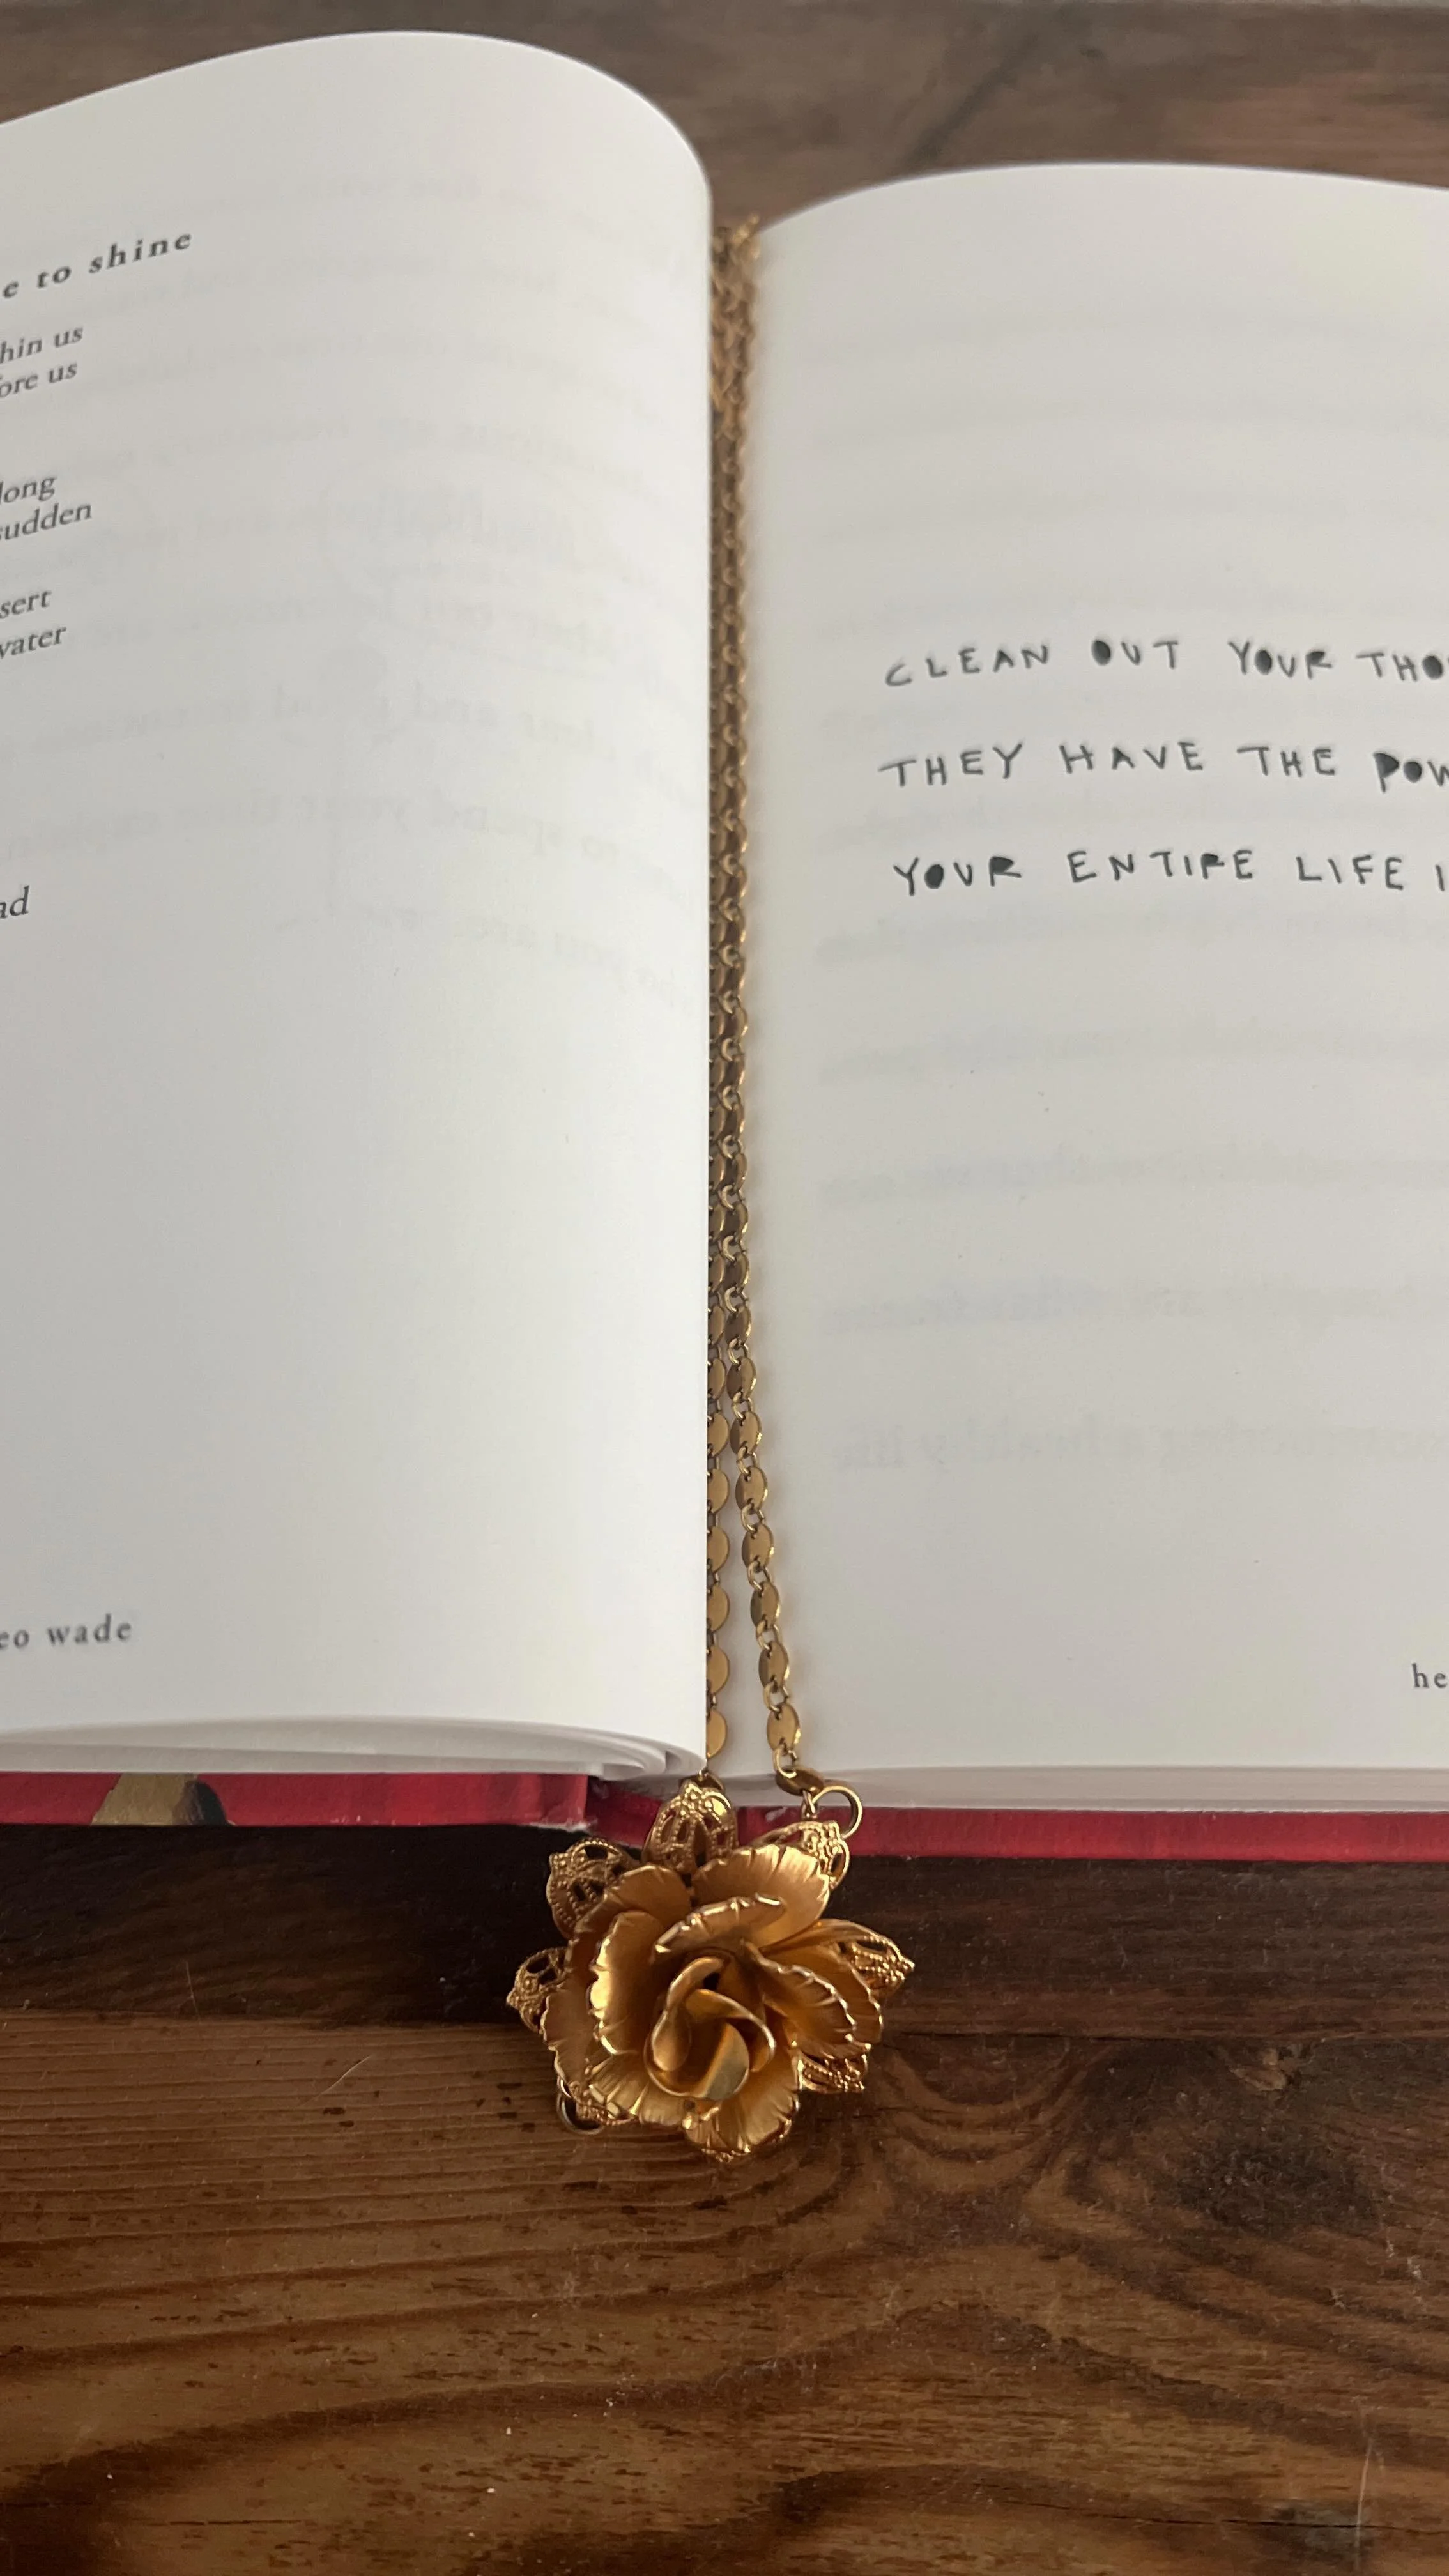 e to shine
hin us
ore us
long
sudden
sert
water
ad
eo wade
CLEAN OUT YOUR THO
THEY HAVE THE POW
YOUR ENTIRE LIFE I
he